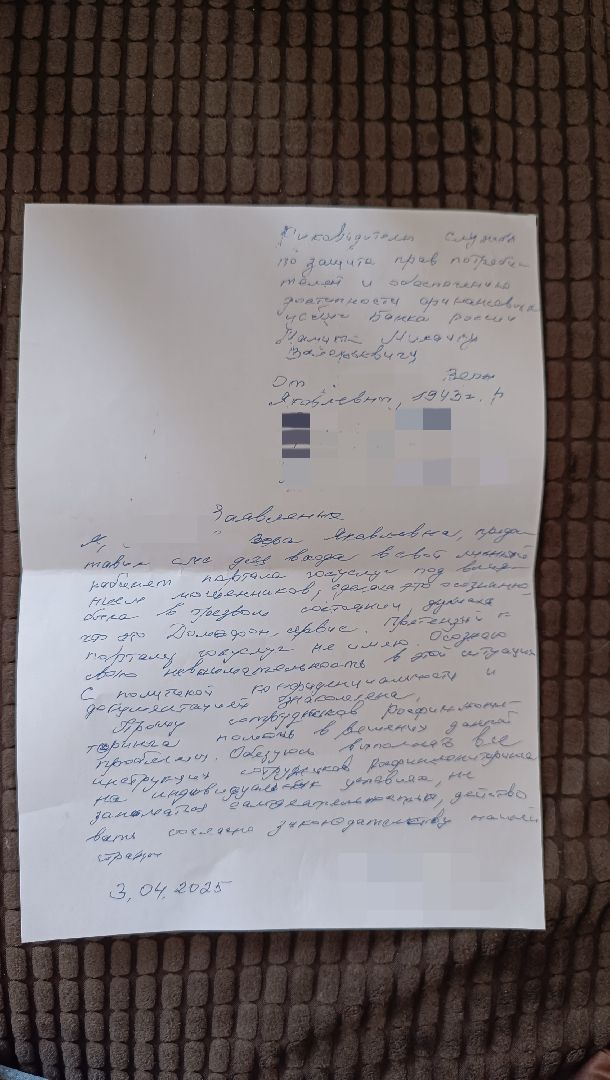 Руководителю службы
по защите прав потреби
телей и обеспечению
доступности финансовых
услуг Банка россии
Мамуте Михаилу
Валерьевичу
От Веры
Яковлевны, 1943г.
Заявление
Я, Вера Яковлевна, предос
тавив смс для входа в свой личный
кабинет портала госуслуг под влия
нием мошенников, сделала это осознанно
была в трезвом состоянии, думала
что это Домофон. сервис. Претензий к
порталу госуслуг не имею. Осознаю
свою невнимательность в этой ситуации
С политикой конфиденциальности и
документацией ознакомлена,
Прошу сотрудников Росфинмони-
торинга помочь в решении данной
проблемы. Обязуюсь выполнять все
инструкции сотрудников росфинмониторинга
на индивидуальных условиях, не
заниматься самодеятельностью, действо
вать согласно законодательству нашей
страны
3,04,2025